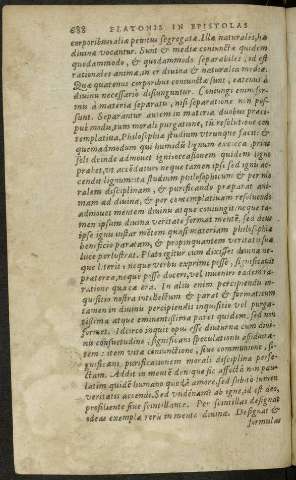 688 PLATONIS IN EPISTOLAS
corporibus alia penitus segregatæ. Illæ naturales, hæ
diuinæ vocantur. Sunt & mediæ coniunctæ quidem
quodammodo, & quodammodo separabiles, id est
rationales animæ, inter diuina & naturalia mediæ.
Quæ quatenus corporibus coniunctæ sunt, eatenus à
diuinis necessario disiunguntur. Coniungi enim for-
mis à materia separatis, nisi separatione non pos-
sunt. Separantur autem in materia duobus præci-
puè modis, tum morali purgatione, tum resolutione con-
templatiua. Philosophiæ studium vtrunque facit: &
quemadmodum qui humidum lignum exsicca prius
solis deinde admouet igni occasionem quidem igni
præbet, vt accendatur neque tamen ipse, sed ignis ac-
cendit lignum: ita studium philosophicum & per mo-
ralem disciplinam, & purificando præparat ani-
mam ad diuina, & per contemplatiuam resoluendo
admouet mentem diuinis atque coniungit: neque ta-
men ipsum diuina veritate format mentem, sed deus
ipse ignis instar mentem quasi materiam philosophiæ
beneficio paratam, & propinquantem veritatis suæ
luce perlustrat. Plato igitur cum dixisset diuina ne-
que literis, neque verbis exprimi posse, significauit
præterea, neque posse doceri, vel inueniri eadem ra-
tione qua cætera. In aliis enim percipiendis in-
quisitio nostra intellectum & parat & format: cum
tamen in diuinis percipiendis inquisitio vel purga-
tissima atque eminentissima paret quidem, sed non
formet. Idcirco inquit opus esse diuturna cum diui-
nis consuetudine, significans speculationis assiduita-
tem: item vitæ coniunctione, siue communione, si-
gnificans purificationem morali disciplina perfe-
ctam. Addit in mente denique sic affecta non pau-
latim quidem humano quodam more, sed subito lumen
veritatis accendi. Sed vndenam? ab igne, id est deo,
prosiliente siue scintillante. Per scintillas designat
ideas exempla rerum in mente diuina. Designat &
formulas